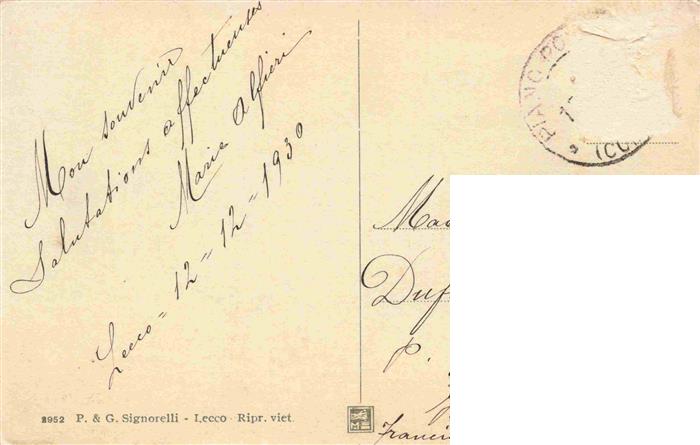 Mon souvenir
Salutations affectueuses
Marie Alfieri
Lecco = 12 = 12 = 1930
2952 P. & G. Signorelli - Lecco - Ripr. viet.
PIANO RO
(CO
Ma
Duf
P.
Franci